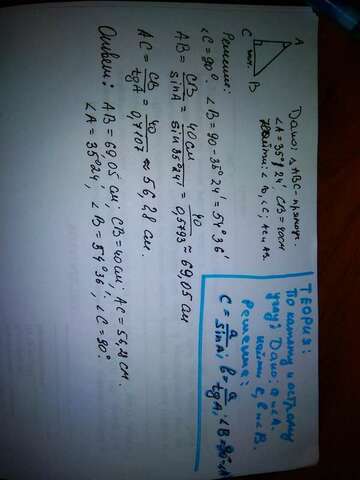 A
C
B
Дано: △ABC - прямоуг.
∠A = 35°24', CB = 40см
Найти: ∠B, ∠C, AC и AB.
Решение:
∠C = 90°. ∠B = 90 - 35°24' = 54°36'
AB = CB/sinA = 40см/sin 35°24' = 40/0,5793 ≈ 69,05 см
AC = CB/tgA = 40/0,7107 ≈ 56,28 см.
Ответ: AB = 69,05 см, CB = 40 см, AC = 56,28 см.
∠A = 35°24', ∠B = 54°36', ∠C = 90°
ТЕОРИЯ:
По катету и острому
углу: Дано: a и ∠A.
Найти c, b и ∠B.
Решение:
c = a/sinA; b = a/tgA; ∠B = 90° - ∠A